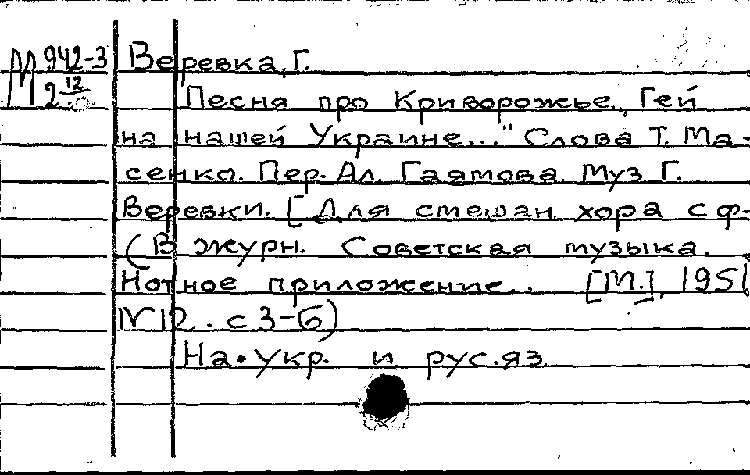 М 942-3
2 12
Веревка, Г.
Песня про Криворожье. "Гей
на нашей Украине..." Слова Т. Ма-
сенко. Пер. Ал. Гаямова. Муз Г.
Веревки. [Для смешан. хора с ф-
(В журн. Советская музыка.
Нотное приложение.. [М.], 1951
№ 12. с 3-6)
На укр. и рус. яз